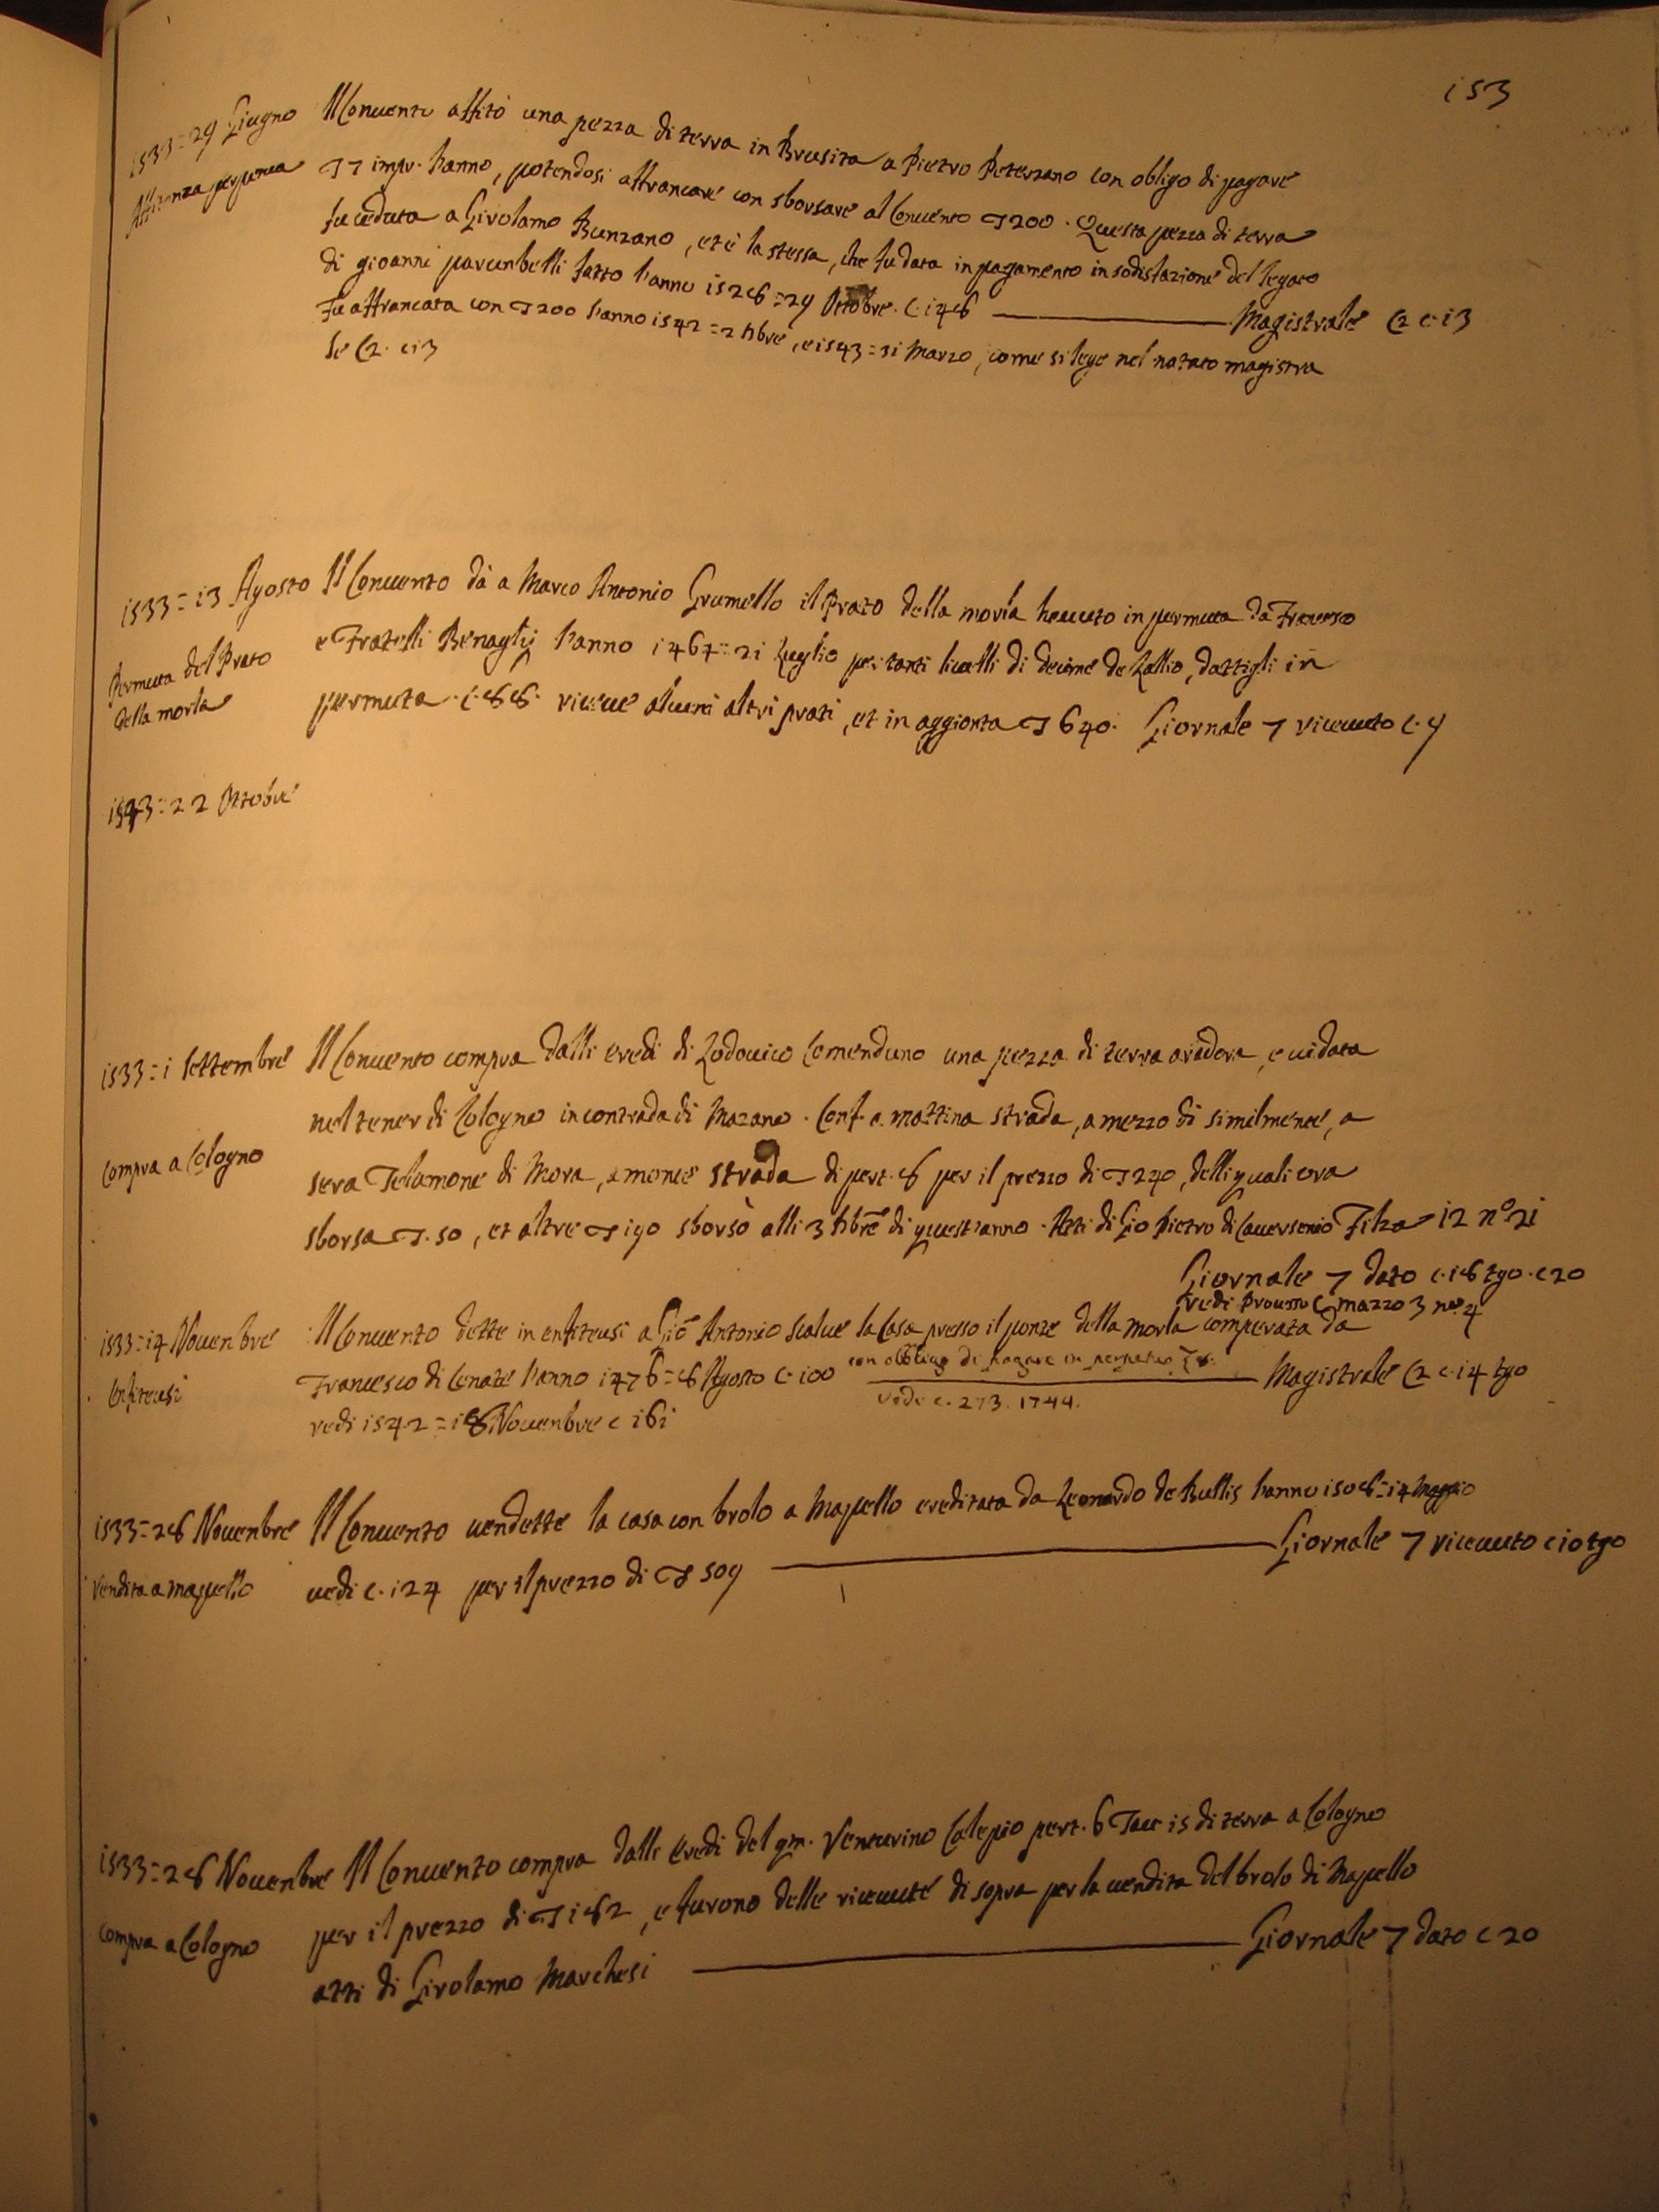 153
1533=29 Giugno Il Conuento affitò una pezza di terra in Brusita a Pietro Peterzano con obligo di pagare
Affitanza perpetua £ 7 imp. l'anno, potendosi affrancare con sborsare al Conuento £ 200. Questa pezza di terra
fu ceduta a Girolamo Bunzano, et è la stessa, che fu data in pagamento in sodisfazione del legato
di gioanni parunbelli fatto l'anno 1528=29 Ottobre. c. 148 Magistrale C2 c. 13
Fu affrancata con £ 200 l'anno 1542=2 Xbre, e 1543=31 Marzo, come si lege nel notato magistra
le C2. c 13
1533=13 Agosto Il Conuento dà a Marco Antonio Grumello il Prato della morla hauuto in permuta da Francesco
Permuta del Prato e Fratelli Benaglij l'anno 1467=21 Luglio per tanti liuelli di decime de Lallio, dattigli in
della morla permuta. c. 88. riceue alcuni altri prati, et in aggionta £ 640. Giornale 7 riceuuto c. 9
1543=22 Ottobre
1533=1 Settembre Il Conuento compra dalli eredi di Lodouico Comenduno una pezza di terra aradora, e uidata
nel tener di Cologno in contrada di Mazano. Conf. a mattina strada, a mezzo di similmente, a
Compra a Cologno sera Telamone di Mora, a monte strada di pert. 8 per il prezzo di £ 240, delli quali ora
sborsa £. 50, et altre £ 190 sborsò alli 3 Xbre di quest'anno. Atti di Gio Pietro di Cauersenio Filza 12 nº 21
Giornale 7 dato c. 18 tgo. c 20
vedi Processo C mazzo 3 nº 4
1533=14 Nouenbre Il Conuento dette in enfiteusi a Giō Antonio Scalue la Casa presso il ponte della morla comperata da
Enfiteusi Francesco di Cenate l'anno 1476=8 Agosto c. 100 con obbligo di pagare in perpetuo £ 8. Magistrale C2 c. 14 tgo
Vedi c. 273. 1744.
vedi 1542=18 Nouenbre c 161
1533=28 Nouenbre Il Conuento uendette la casa con brolo a Mapello ereditata da Leonardo de Bullis l'anno 1508=14 Maggio
Vendita a mapello uedi c. 124 per il prezzo di £ 509 Giornale 7 riceuuto c 10 tgo
1533=28 Nouenbre Il Conuento compra dalli Eredi del qm. Venturino Calepio pert. 6 Tau 15 di terra a Cologno
Compra a Cologno per il prezzo di £ 182, e furono delle riceuute di sopra per la uendita del brolo di Mapello
atti di Girolamo Marchesi Giornale 7 dato c 20